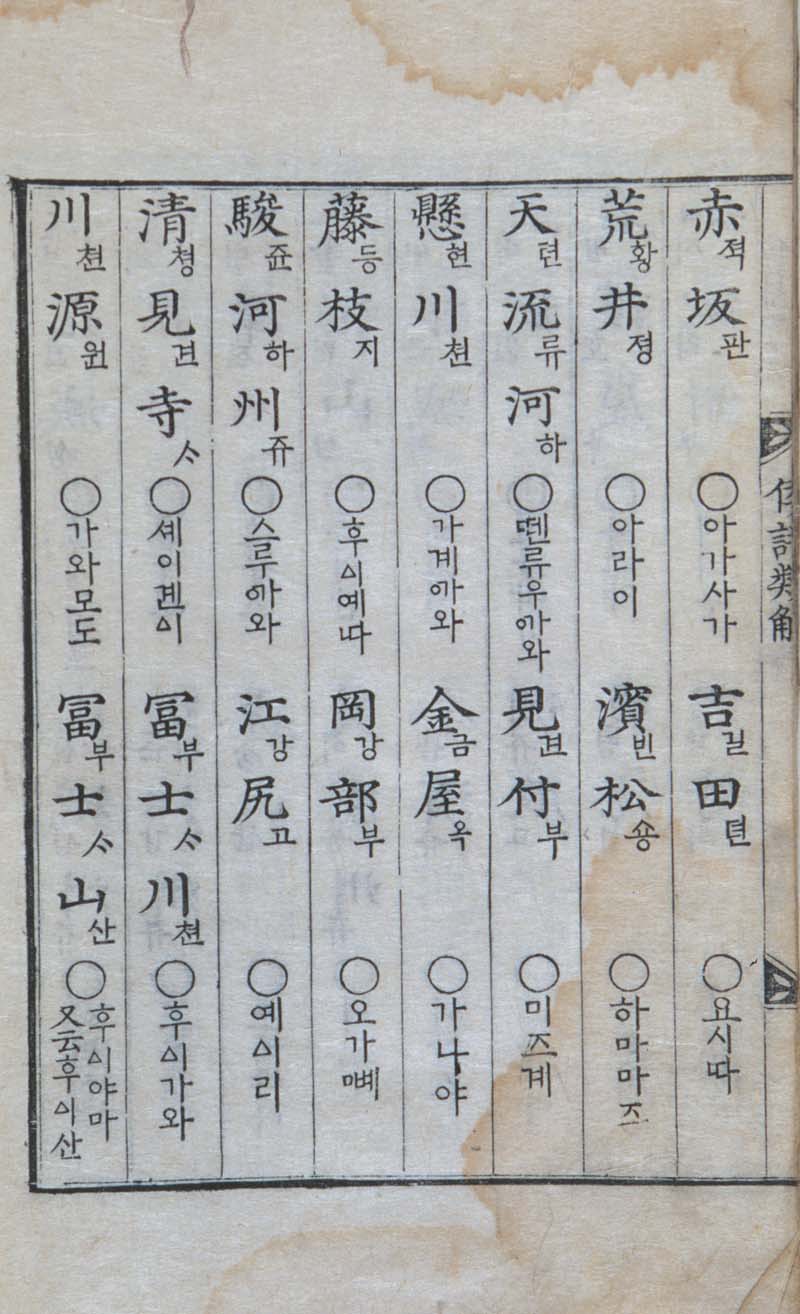 倭語類解
赤젹坂판○아가사가 吉길田뎐○요시따
荒황井졍○아라이 濱빈松숑○하마마즈
天텬流류河하○뗀류우ᅁᅡ와 見견付부○미즈계
懸현川쳔○가계ᅁᅡ와 金금屋옥○가나야
藤등枝지○후ᅀᅵ예따 岡강部부○오가ᄜᅨ
駿쥰河하州쥬○슬루ᅁᅡ와 江강尻고○예ᅀᅵ리
清쳥見견寺ᄉᆞ○셰이겐ᅀᅵ 冨부士ᄉᆞ川쳔○후ᅀᅵ가와
川쳔源원○가와모도 冨부士ᄉᆞ山산○후ᅀᅵ야마
又云후ᅀᅵ산